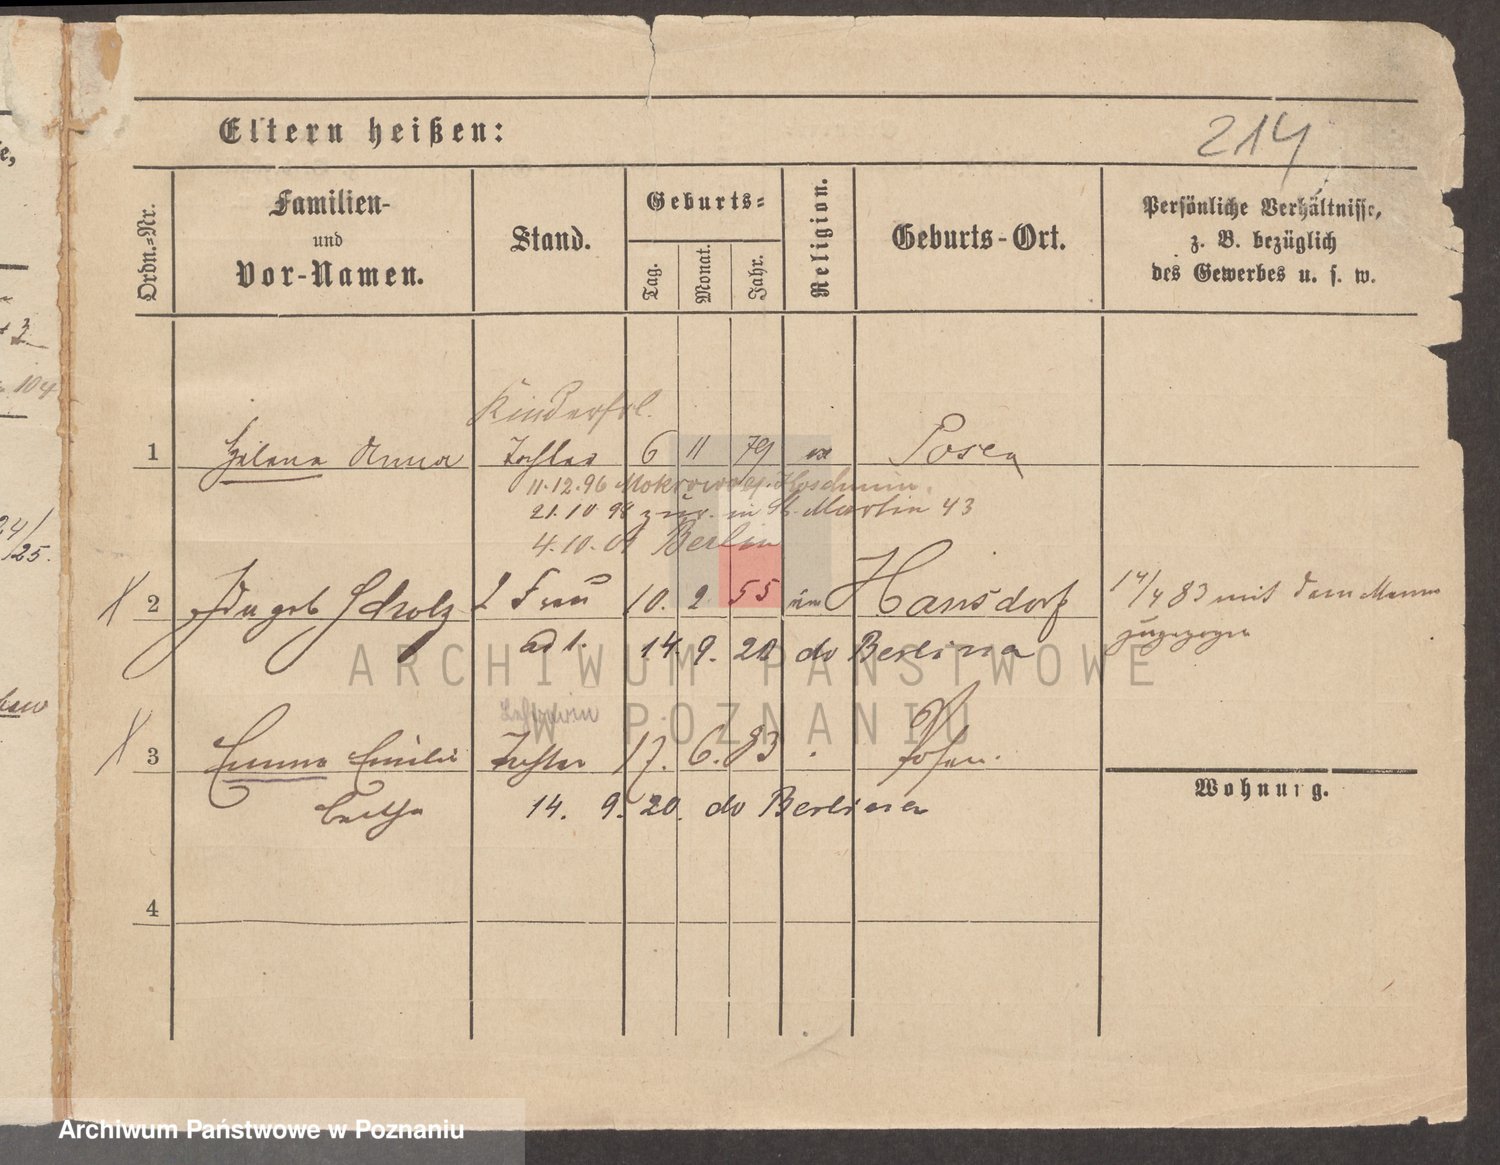 Eltern heißen:
214
Ordn.-Nr.
Familien-
und
Vor-Namen.
Stand.
Geburts-
Tag.
Monat.
Jahr.
Religion.
Geburts-Ort.
Persönliche Verhältnisse,
z. B. bezüglich
des Gewerbes u. s. w.
Kinderfrl.
1 Helene Anna Tochter 6 11 79 Posen
11.12.96 Mokronos Koschmin.
21.10 98 zur. in St. Martin 43
4.10.01 Berlin
2 Ida geb Scholz Frau 10. 2 55 Hansdorf 14/4 83 mit dem Manne
zugezogen
ad 1. 14. 9. 20 do Berlina
3 Emma Emilie Tochter 17. 6. 83 Posen.
Bertha 14. 9. 20. do Berlina
Wohnung.
4
ARCHIWUM PAŃSTWOWE
W POZNANIU
Archiwum Państwowe w Poznaniu